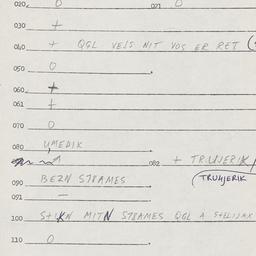 020. 0 021 0
030 +
040 + QGL VELS NIT VOS ER RET (
050 0 .
060 + .
061 + .
070 0
080 UMEDIK
082 + TRUHJERIK/
090 BEZN STRAMES . (TRUHJERIK
091 — .
100 S+IKN MITN STRAMES QGL A
110 0 .